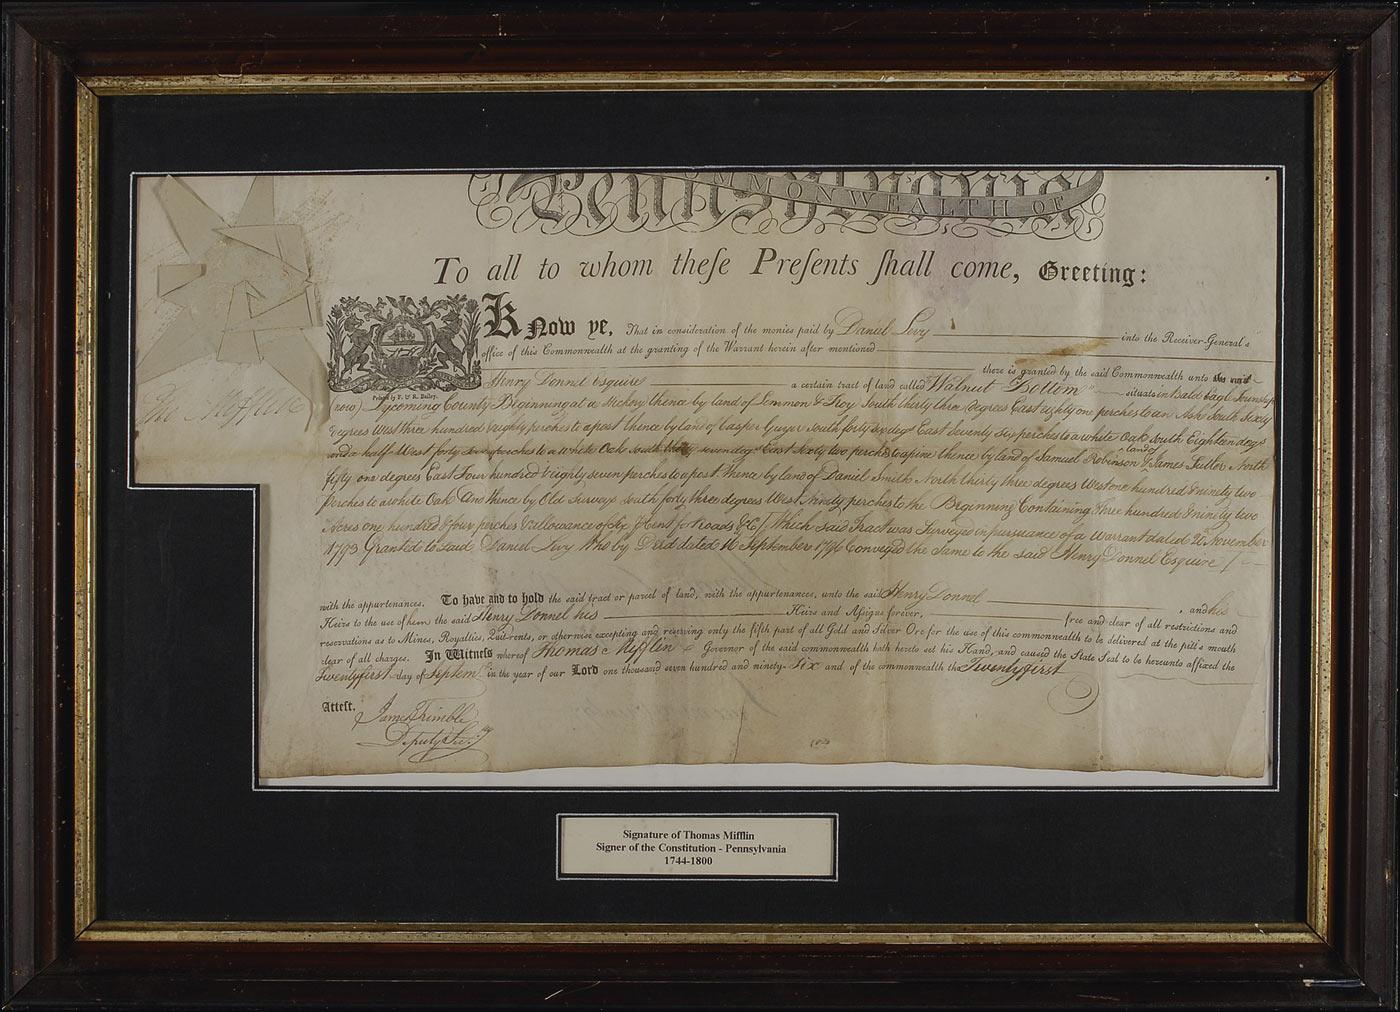 COMMONWEALTH OF
Pennsylvania
To all to whom theſe Preſents ſhall come, Greeting:
Know ye, That in consideration of the monies paid by Daniel Levy into the Receiver-General's
office of this Commonwealth at the granting of the Warrant herein after mentioned
there is granted by the said Commonwealth unto the said
Henry Donnel Esquire a certain tract of land called "Walnut Bottom" situate in Bald Eagle Township
Printed by F. & R. Bailey.
Tho Mifflin
(now) Lycoming County Beginning at a Hickory thence by land of Lemmon & Foy South thirty three degrees East eighty one perches to an Ash South Sixty
degrees West three hundred & eighty perches to a post thence by land of Casper Guyer South forty six degs East Seventy Six perches to a white Oak South Eighteen degs
and a half West forty seven perches to a White Oak South thirty seven degs East Sixty two perches to a pine thence by land of Samuel Robinson & land of James Tutler North
fifty one degrees East Four hundred & eighty seven perches to a post thence by land of Daniel Smith North thirty three degrees West one hundred & ninety two
Perches to a White Oak And thence by Old Surveys South forty three degrees West Ninety perches to the Beginning Containing three hundred & ninety two
Acres one hundred & four perches & allowance of Six P Cent for Roads &c [Which said Tract was Surveyed in pursuance of a Warrant dated 26 November
1793 Granted to said Daniel Levy Who by Deed dated 16 September 1796 Conveyed the Same to the said Henry Donnel Esquire]
with the appurtenances. To have and to hold the said tract or parcel of land, with the appurtenances, unto the said Henry Donnel, and his
Heirs to the use of him the said Henry Donnel his Heirs and Assigns forever, free and clear of all restrictions and
reservations as to Mines, Royalties, Quit-rents, or otherwise excepting and reserving only the fifth part of all Gold and Silver Ore for the use of this commonwealth to be delivered at the pit's mouth
clear of all charges. In Witneſs whereof Thomas Mifflin Governor of the said commonwealth hath hereto set his Hand, and caused the State Seal to be hereunto affixed the
Twenty first day of Septemr in the year of our Lord one thousand seven hundred and ninety-Six and of the commonwealth the Twenty first
Attest.
James Trimble
Deputy Secy
Signature of Thomas Mifflin
Signer of the Constitution - Pennsylvania
1744-1800